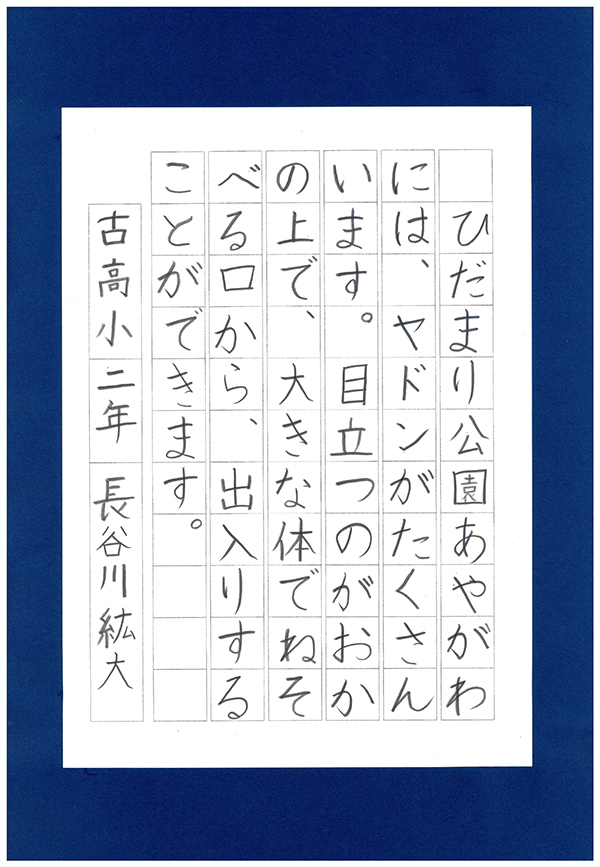 ひだまり公園あやがわ
には、ヤドンがたくさん
います。目立つのがおか
の上で、大きな体でねそ
べる口から、出入りする
ことができます。
古高小二年　長谷川紘大